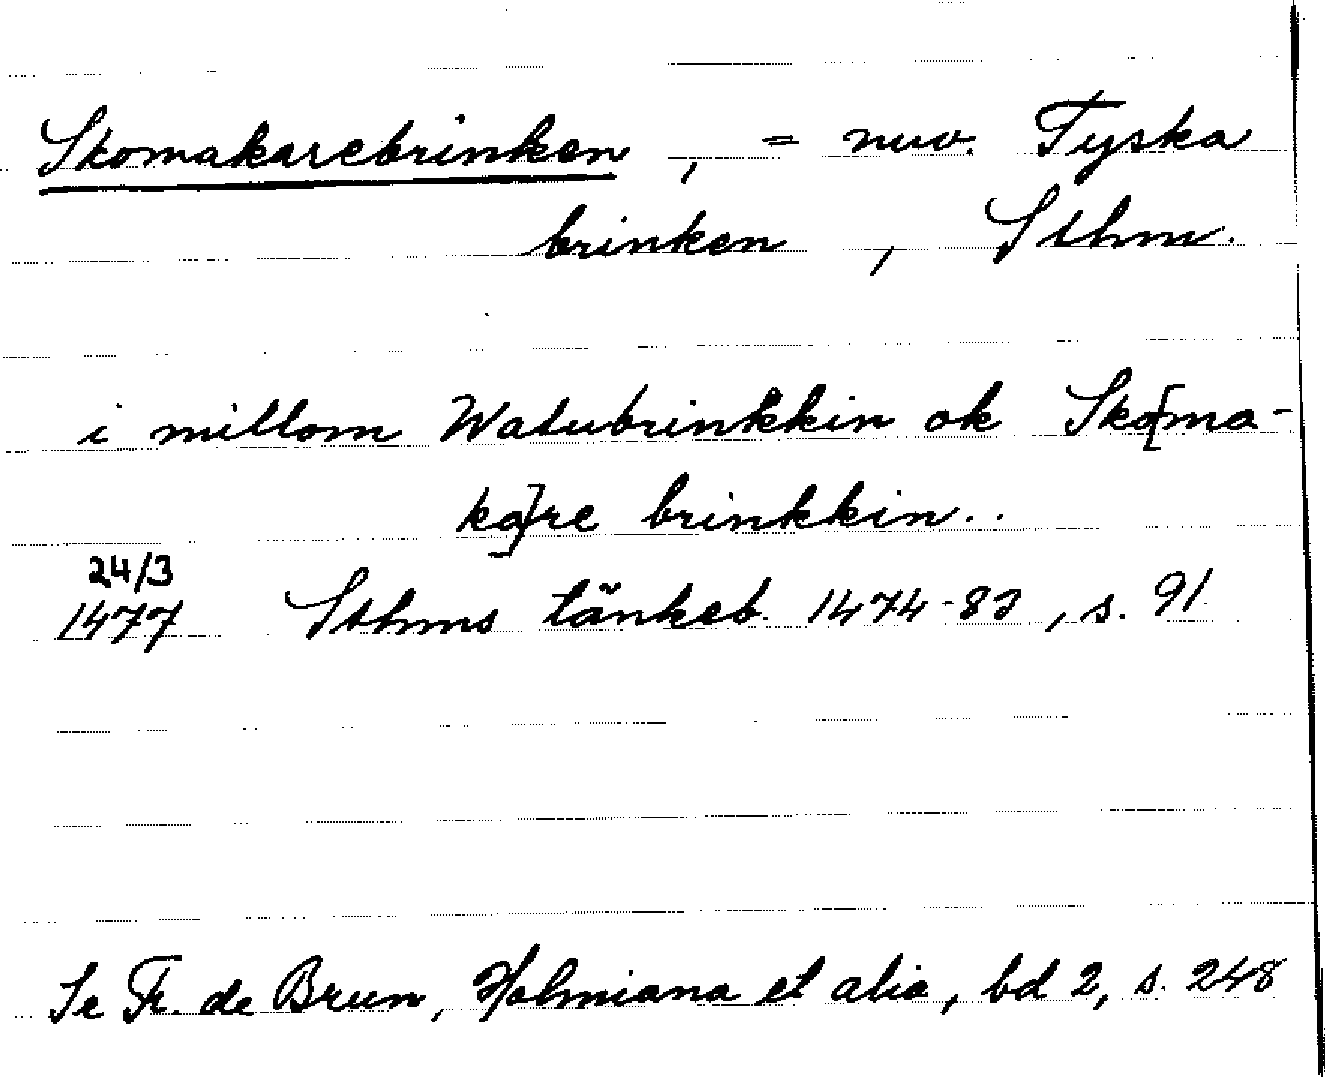 Skomakarebrinken, = nuv. Tyska
brinken, Sthm.
i millom Watubrinkkin ok Sko[ma-
ka]re brinkkin..
24/3
1477 Sthms tänkeb. 1474-83, s. 91
Se Fr. de Brun, Holmiana et alia, bd 2, s. 248